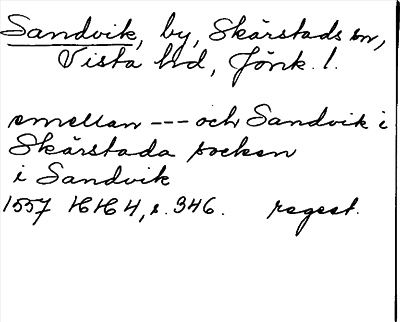 Sandvik, by, Skärstads sn,
Vista hd, Jönk. l.
emellan --- och Sandvik i
Skärstada socken
i Sandvik
1557 HH 4, s. 346. regest.